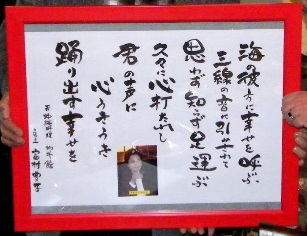 海の彼方に幸せを呼ぶ
三線の音に引かれて
思わず知らず足運ぶ
久々に心打たれし
君の声に
心うきうき
踊り出す幸せを